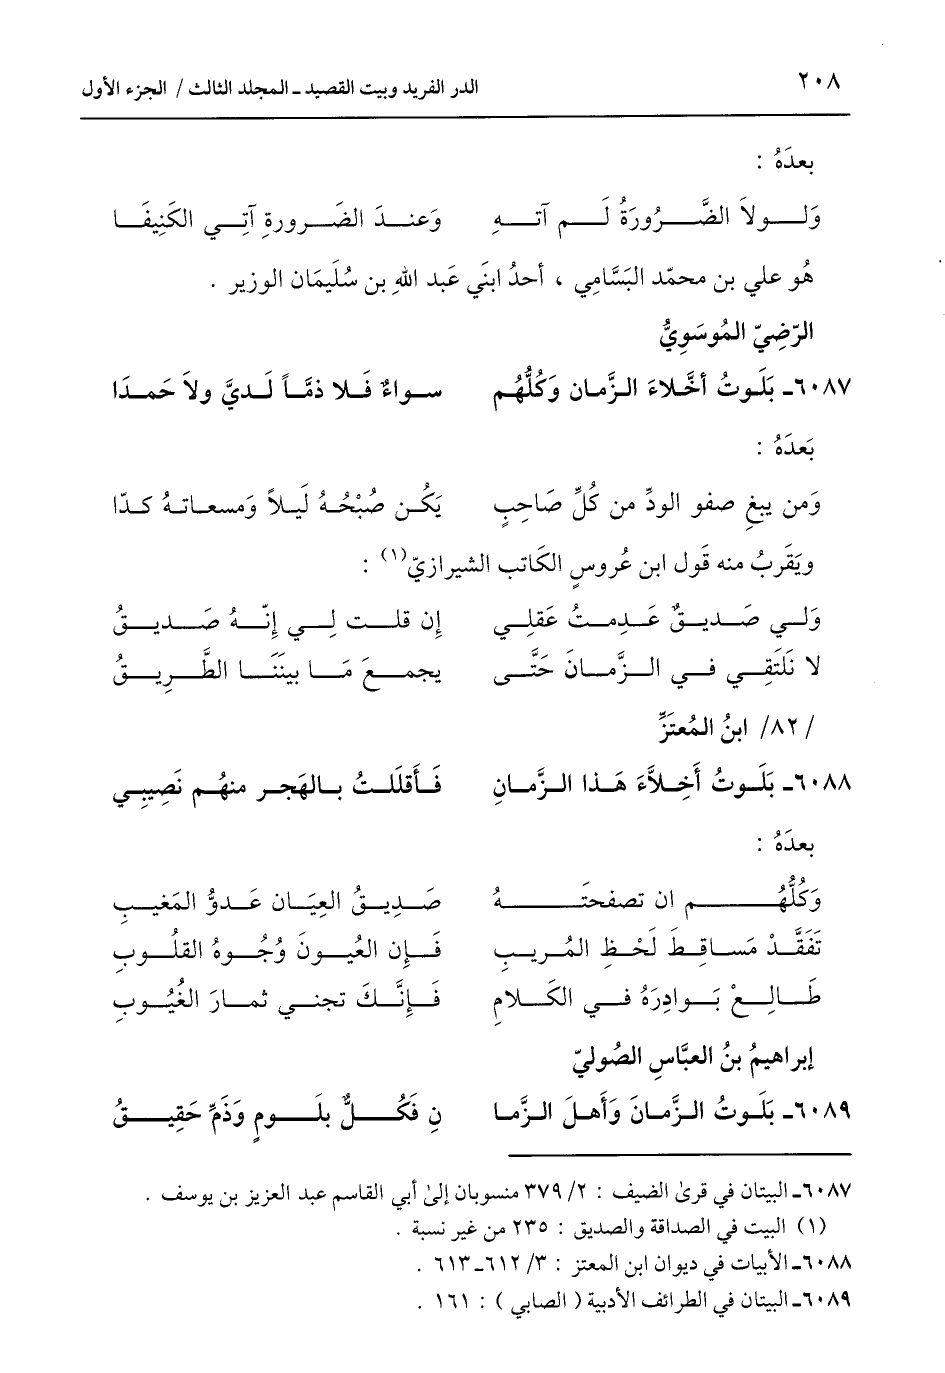 ٢٠٨ الدر الفريد وبيت القصيد ـ المجلد الثالث / الجزء الأول
بعدَهُ :
وَلولاَ الضَّرُورَةُ لَم آتهِ وَعندَ الضَرورةِ آتِي الكَنِيفَا
هُو علي بن محمّد البَسَّامِي ، أحدُ ابنَي عَبد اللهِ بن سُليمَان الوزير .
الرّضِيّ المُوسَوِيُّ
٦٠٨٧ـ بَلَوتُ أخَّلاءَ الزَّمان وَكُلُّهُم سواءٌ فَلا ذمَّاً لَديَّ ولاَ حَمدَا
بَعدَهُ :
وَمن يبغِ صفو الودِّ من كُلِّ صَاحِبٍ يَكُن صُبْحُهُ لَيلاً وَمسعاتهُ كدّا
ويَقربُ منه قَول ابن عُروسٍ الكَاتب الشيرازيّ(١) :
وَلي صَديقٌ عَدِمتُ عَقلِي إن قلت لِي إنّهُ صَديقُ
لا نَلتَقِي في الزَّمانَ حَتَّى يجمعَ مَا بينَنَا الطَّرِيقُ
/ ٨٢/ ابنُ المُعتَزِّ
٦٠٨٨ـ بَلَوتُ أخِلاَّءَ هَذا الزَّمانِ فَأقلَلتُ بالهَجر منهُم نَصِيبِي
بعدَهُ :
وَكُلُّهُم ان تصفحتَهُ صَدِيقُ العِيَان عَدوُّ المَغيبِ
تَفَقَّدْ مَساقِطَ لَحْظِ المُريبِ فَإن العُيونَ وُجُوهُ القلُوبِ
طَالِعْ بَوادِرَهُ في الكَلامِ فَإنَّكَ تجني ثمارَ الغُيُوبِ
إبراهيمُ بنُ العبَّاسِ الصُوليّ
٦٠٨٩ـ بَلَوتُ الزَّمانَ وَأهلَ الزَّما نِ فَكُلٌّ بلَومٍ وَذَمٍّ حَقِيقُ
٦٠٨٧ـ البيتان في قرى الضيف : ٢/ ٣٧٩ منسوبان إلىٰ أبي القاسم عبد العزيز بن يوسف .
(١) البيت في الصداقة والصديق : ٢٣٥ من غير نسبة .
٦٠٨٨ـ الأبيات في ديوان ابن المعتز : ٣/ ٦١٢ـ٦١٣ .
٦٠٨٩ـ البيتان في الطرائف الأدبية ( الصابي ) : ١٦١ .